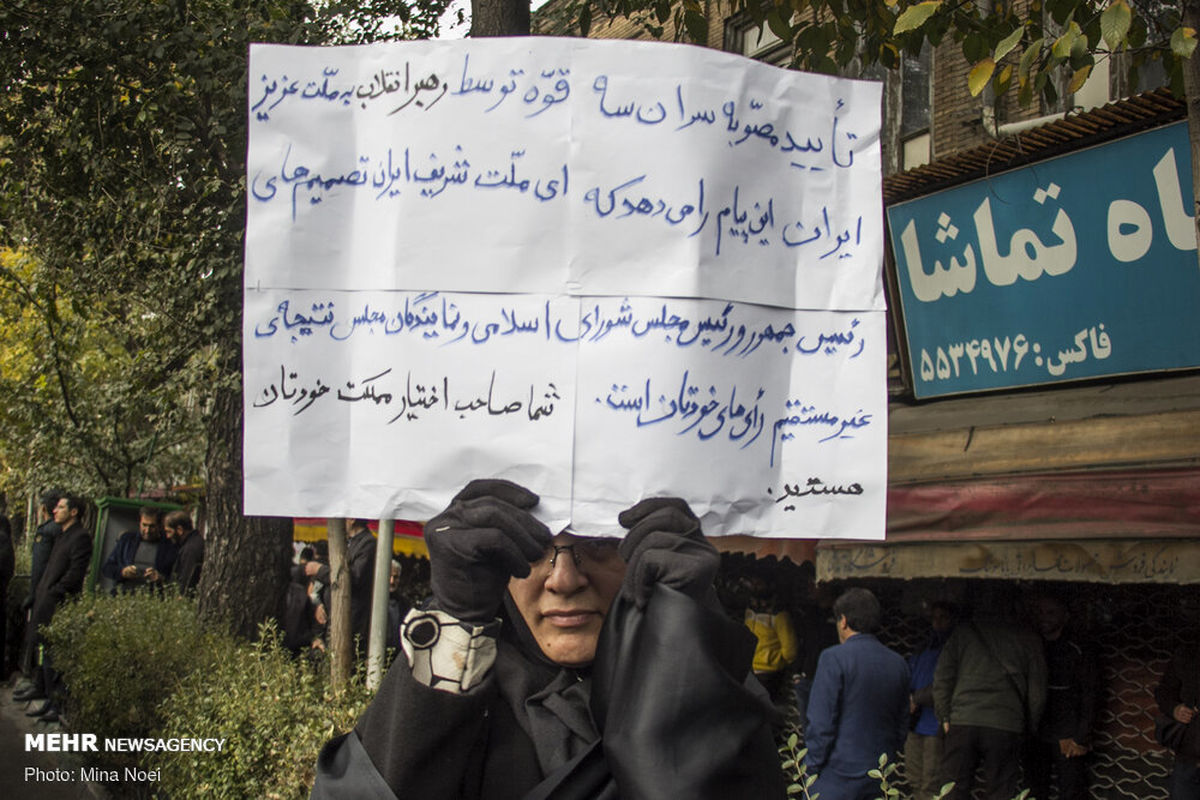 تأیید مصوّبه سران سه قوّه توسط رهبر انقلاب به ملّت عزیز
ایران این پیام را می دهد که ای ملّت شریف ایران تصمیم های
رئیس جمهور و رئیس مجلس شورای اسلامی و نمایندگان مجلس نتیجه ی
غیر مستقیم رأی های خودتان است. شما صاحب اختیار مملکت خودتان
هستید.
اه تماشا
فاکس: ۵۵۳۴۹۷۶
MEHR NEWSAGENCY
Photo: Mina Noei